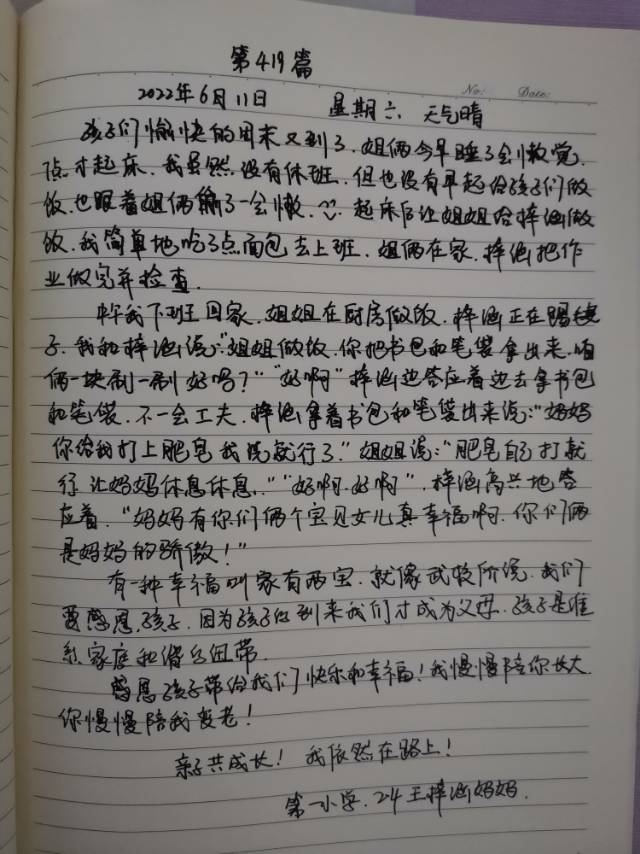 第419篇
No: Date:
2022年6月11日 星期六 天气晴
孩子们愉快的周末又到了，姐俩今早睡了会懒觉，
8点才起床，我虽然没有休班，但也没有早起给孩子们做
饭，也跟着姐俩偷了一会懒，起床后让姐姐给梓涵做
饭，我简单地吃了点面包去上班，姐俩在家，梓涵把作
业做完并检查。
中午我下班回家，姐姐在厨房做饭，梓涵正在踢毽
子，我和梓涵说："姐姐做饭，你把书包和笔袋拿出来，咱
俩一块刷一刷好吗？""好啊"梓涵边答应着边去拿书包
和笔袋，不一会工夫，梓涵拿着书包和笔袋出来说："妈妈
你给我打上肥皂我洗就行了。"姐姐说："肥皂自己打就
行，让妈妈休息休息，""好啊，好啊"，梓涵高兴地答
应着，"妈妈有你们俩个宝贝女儿真幸福啊，你们俩
是妈妈的骄傲！"
有一种幸福叫家有两宝，就像武校所说，我们
要感恩孩子，因为孩子的到来我们才成为父母，孩子是维
系家庭和谐的纽带。
感恩孩子带给我们快乐和幸福！我慢慢陪你长大，
你慢慢陪我变老！
亲子共成长！我依然在路上！
第一小学，2.4王梓涵妈妈